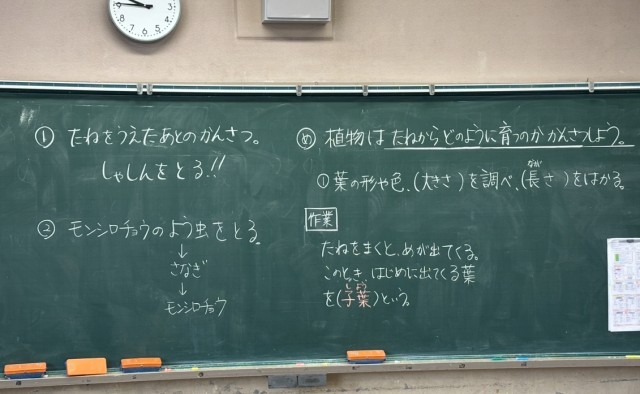 ① たねをうえたあとのかんさつ。
しゃしんをとる!!
② モンシロチョウのよう虫をとる。
↓
さなぎ
↓
モンシロチョウ
め 植物はたねからどのように育つのかかんさつしよう。
① 葉の形や色、(大きさ)を調べ、(長さ)をはかる。
なが
作業
たねをまくと、めが出てくる。
このとき、はじめに出てくる葉
を(子葉)という。
しよう